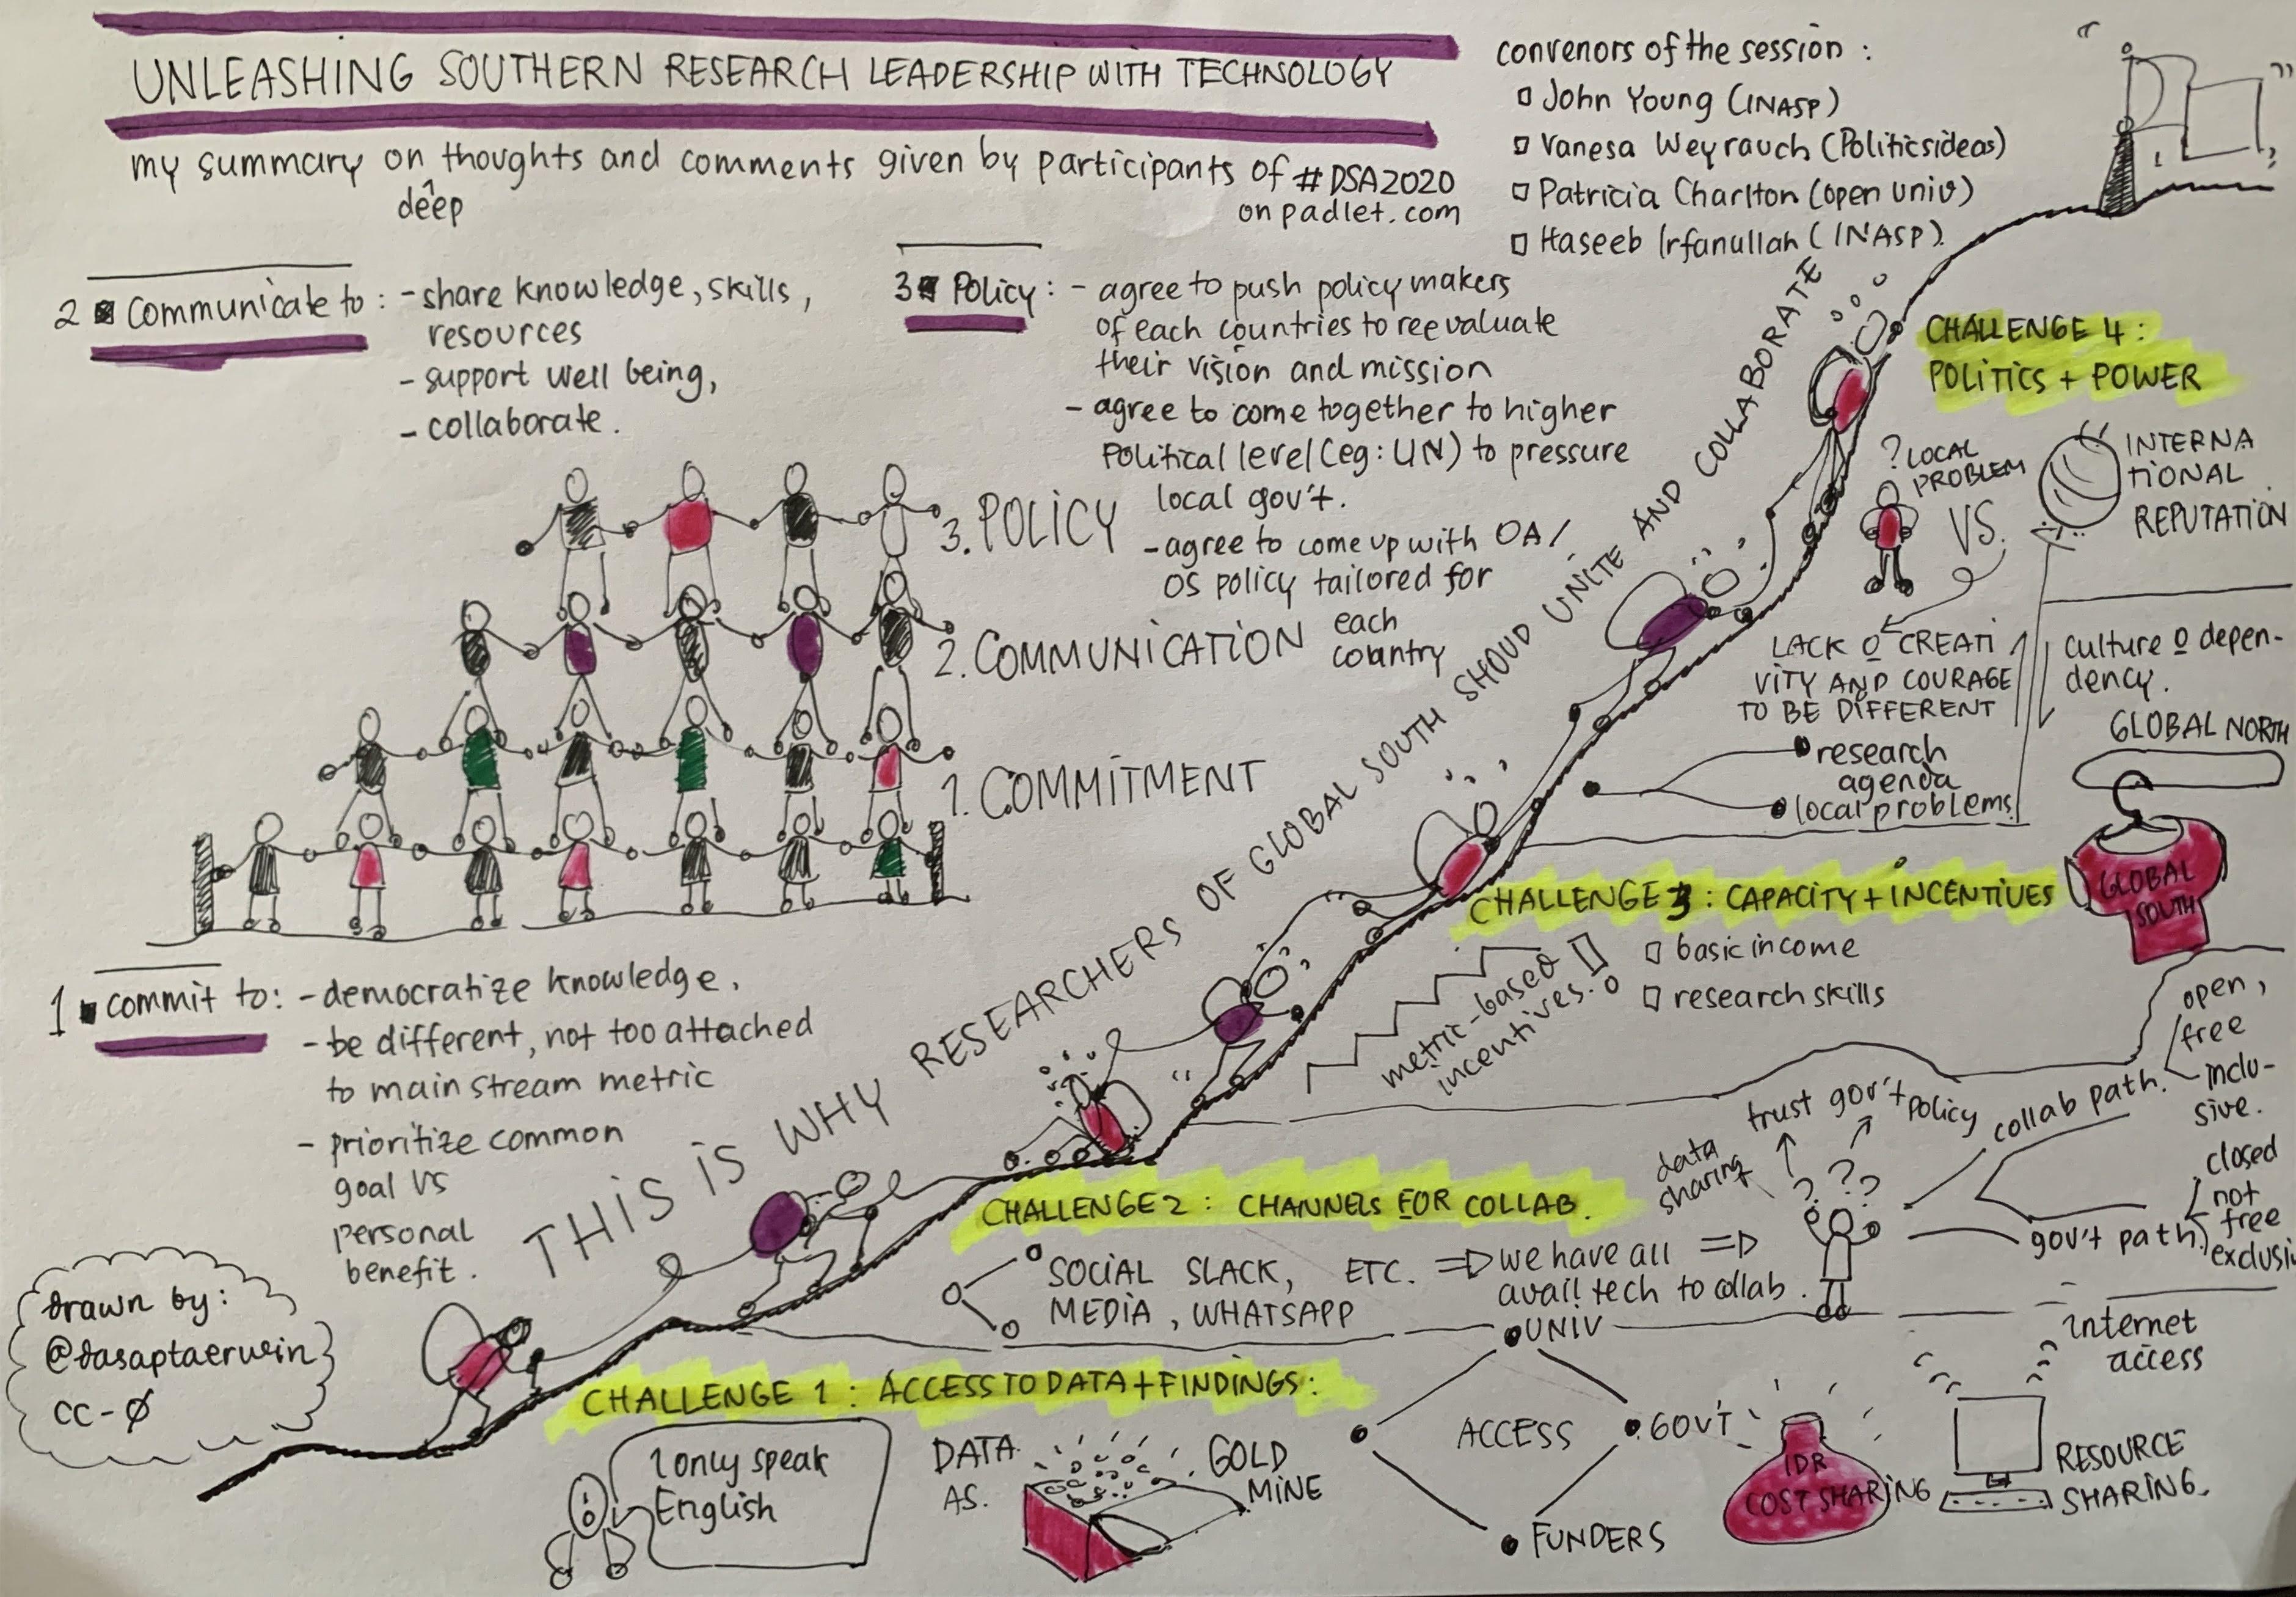 UNLEASHING SOUTHERN RESEARCH LEADERSHIP WITH TECHNOLOGY
my summary on thoughts and comments given by participants of #DSA2020
deep
on padlet.com
convenors of the session :
John Young (INASP)
Vanesa Weyrauch (Politicsideas)
Patricia Charlton (open univ)
Haseeb Irfanullah (INASP)
2 Communicate to : - share knowledge, skills,
resources
- support well being,
- collaborate.
3 Policy : - agree to push policy makers
of each countries to reevaluate
their vision and mission
- agree to come together to higher
Political level (eg: UN) to pressure
local gov't.
- agree to come up with OA/
OS policy tailored for
each
country
3. POLICY
2. COMMUNICATION
1. COMMITMENT
1 commit to: - democratize knowledge,
- be different, not too attached
to main stream metric
- prioritize common
goal vs
personal
benefit.
THIS IS WHY RESEARCHERS OF GLOBAL SOUTH SHOUD UNITE AND COLLABORATE
CHALLENGE 4 :
POLITICS + POWER
? LOCAL
PROBLEM
VS.
INTERNA
TIONAL
REPUTATION
LACK O CREATI
VITY AND COURAGE
TO BE DIFFERENT
culture o depen-
dency.
research
agenda
local problems
GLOBAL NORTH
GLOBAL
SOUTH
CHALLENGE 3 : CAPACITY + INCENTIVES
metric-based
incentives.
basic income
research skills
CHALLENGE 2 : CHANNELS FOR COLLAB.
SOCIAL SLACK, ETC. => we have all =>
MEDIA, WHATSAPP avail tech to collab.
data
sharing
trust gov't policy
? ? ?
collab path.
open,
free
inclu-
sive.
gov't path
closed
not
free
exclusi
CHALLENGE 1 : ACCESS TO DATA + FINDINGS :
I only speak
English
DATA
AS.
GOLD
MINE
UNIV
ACCESS
GOV'T
FUNDERS
IDR
COST SHARING
internet
access
RESOURCE
SHARING.
drawn by:
@dasaptaerwin
CC-Ø